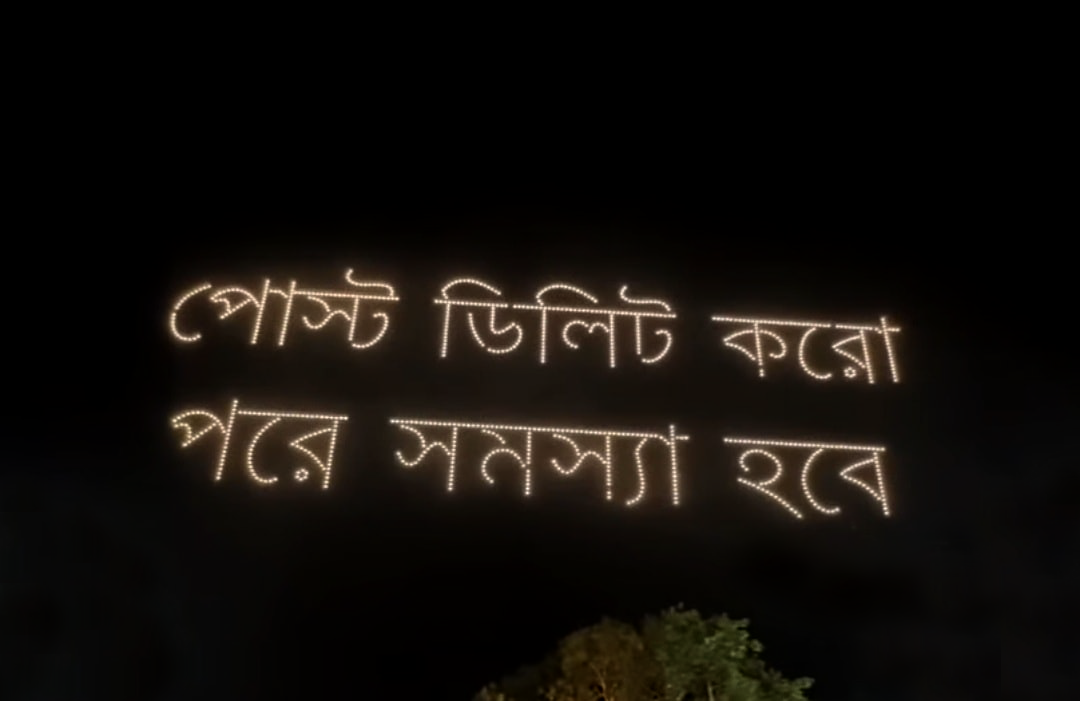 পোস্ট ডিলিট করো
পরে সমস্যা হবে